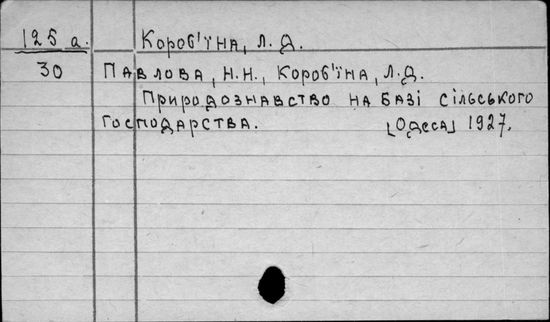 125 а. Короб'їна, Л.Д.
30 Павлова, Н.Н., Короб'їна, Л.Д.
Природознавство на базі сільського
господарства. [Одеса] 1927.